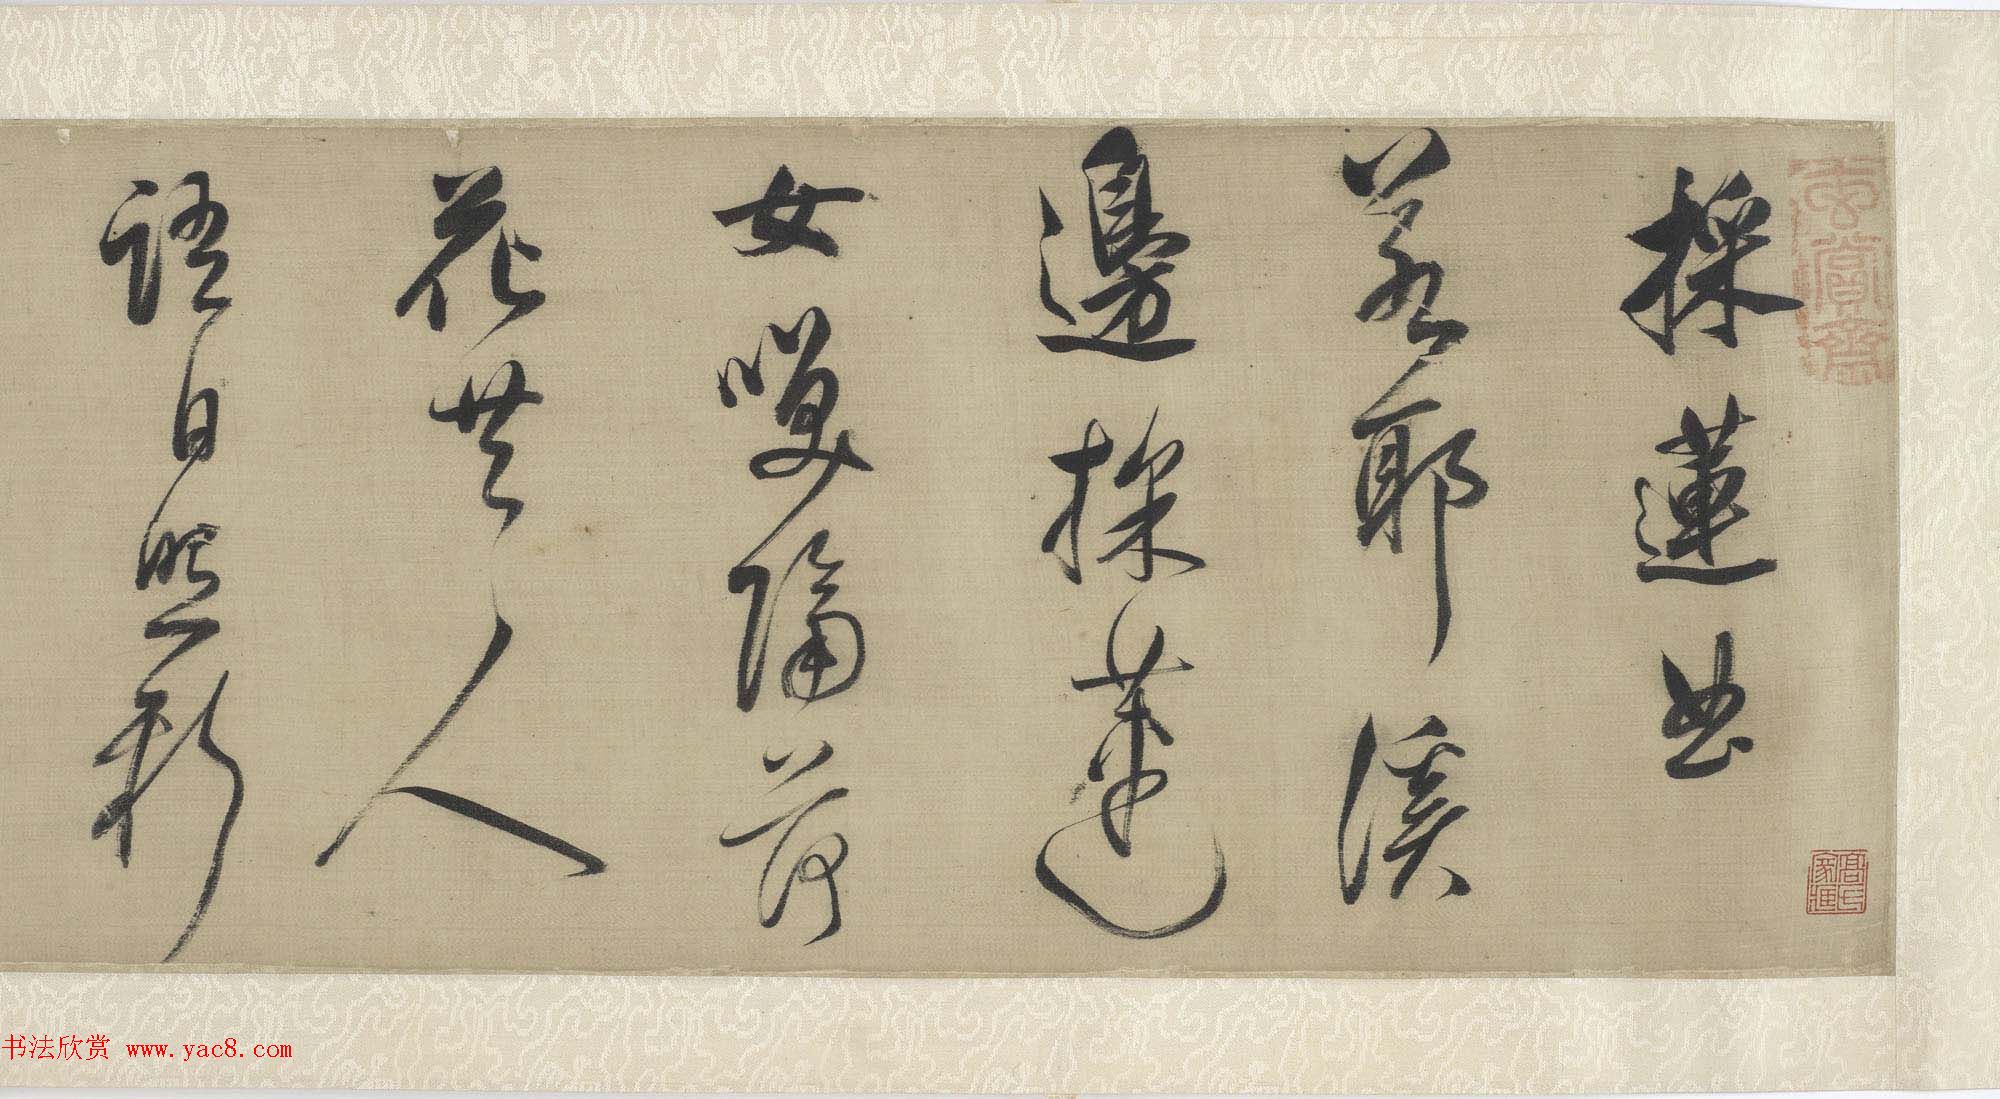 採蓮曲
若耶溪
邊採蓮
女𠸍隔荷
花共人
語日照新
高氏家藏
书法欣赏 www.yac8.com